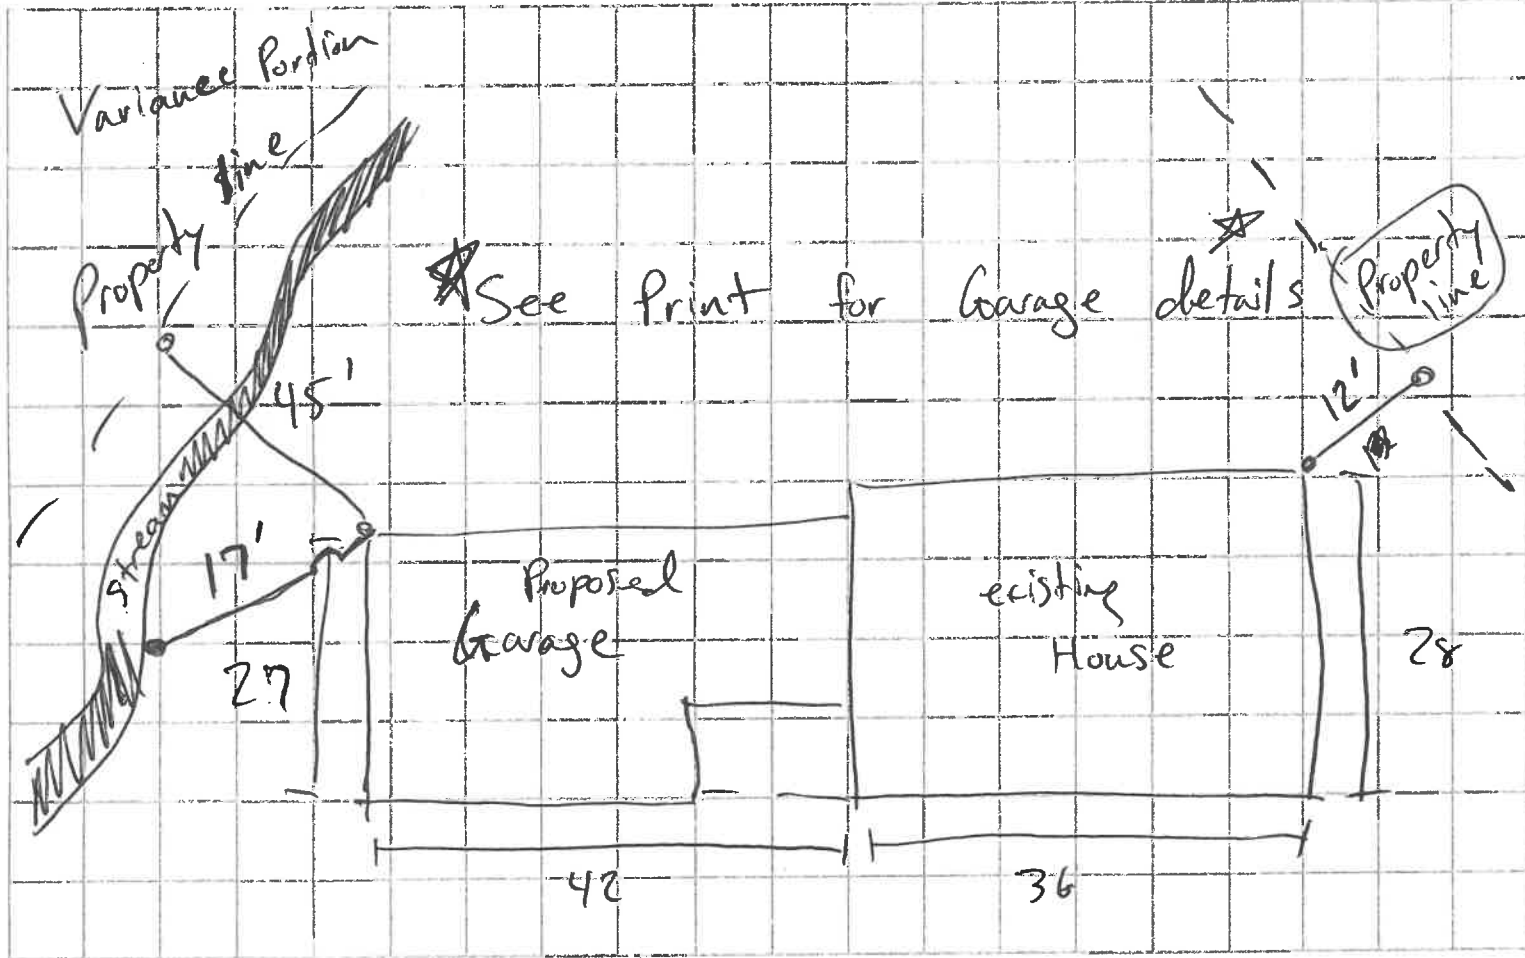 Variance Portion
Property line
☆See Print for Garage details ☆
Property
line
45'
12'
stream
17'
27
Proposed
Garage
existing
House
28
42
36